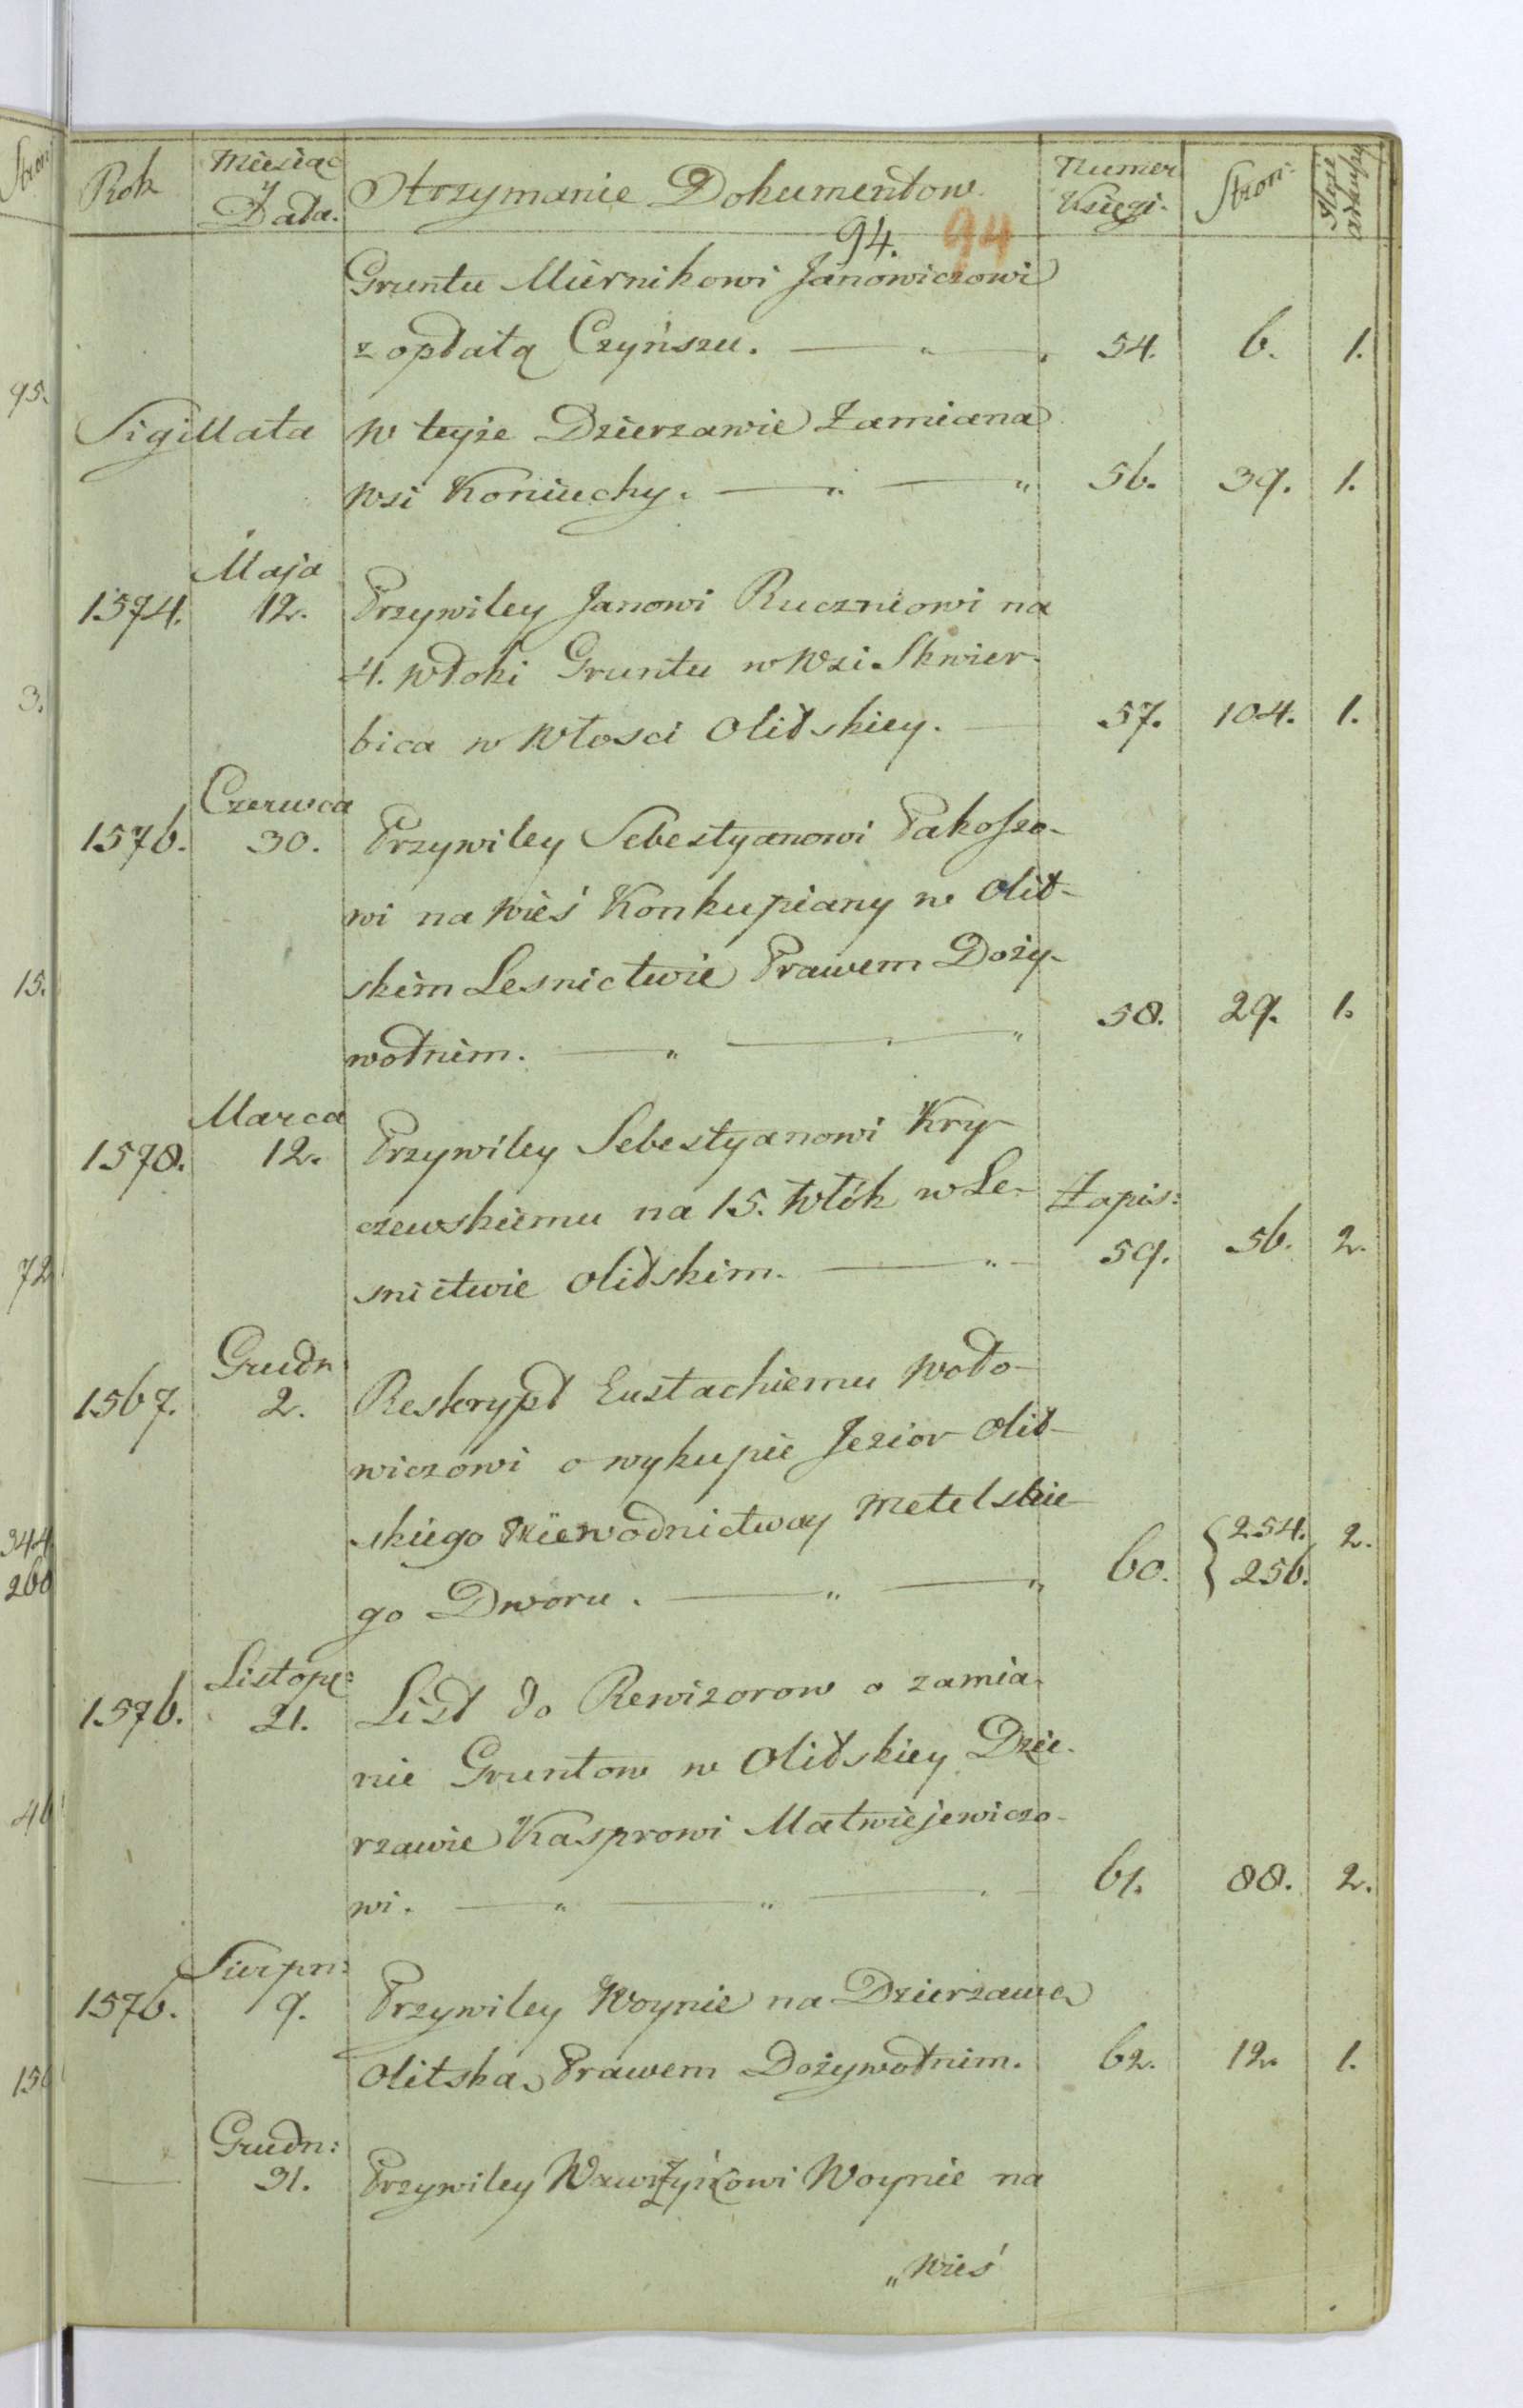 Rok Miesiąc y Data. Otrzymanie Dokumentow. Numer Księgi. Stron:
94. 94
Gruntu Miernikowi Janowiczowi
z opłatą Czyńszu. — " — . 54. 6. 1.
Sigillata w teyże Dzierzawie Zamiana
wsi Koniuchy. — " — " 56. 39. 1.
Maja
1574. 12. Przywiley Janowi Ruczniowi na
4. włoki Gruntu w wsi Skwier-
bica w Włosci Olitskiey. — 57. 104. 1.
Czerwca
1576. 30. Przywiley Sebestyanowi Pakoszo-
wi na wieś Konkupiany w Olit-
skim Lesnictwie Prawem Doży-
wotnim. — " — " 58. 29. 1.
Marca
1578. 12. Przywiley Sebestyanowi Kry-
czewskiemu na 15. Włók w Le- Zapis:
snictwie Olitskim. — " — 59. 56. 2.
Grudn:
1567. 2. Reskrypt Eustachiemu Woło-
wiczowi o wykupie Jezior Olit-
skiego y Metelskie-
go Dworu. — " — " 60. { 254. 256. 2.
Listop:
1576. 21. List do Rewizorow o zamia-
nie Gruntow w Olitskiey Dzie-
rzawie Kasprowi Matwiejewiczo-
wi. — " — " — 61. 88. 2.
Sierpn:
1576. 9. Przywiley Woynie na Dzierzawę
Olitską Prawem Dożywotnim. 62. 12. 1.
Grudn:
— 31. Przywiley Woynie na
„wieś
95.
3.
15.
72.
344
260
46